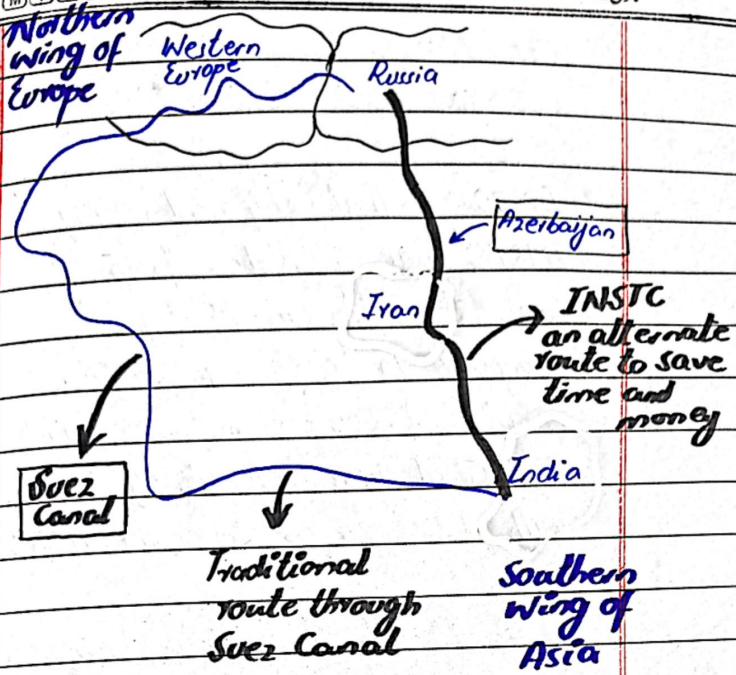 Northern
wing of
Europe
Western
Europe
Russia
Azerbaijan
Iran
INSTC
an alternate
route to save
time and
money
India
Suez
Canal
Traditional
route through
Suez Canal
Southern
wing of
Asia